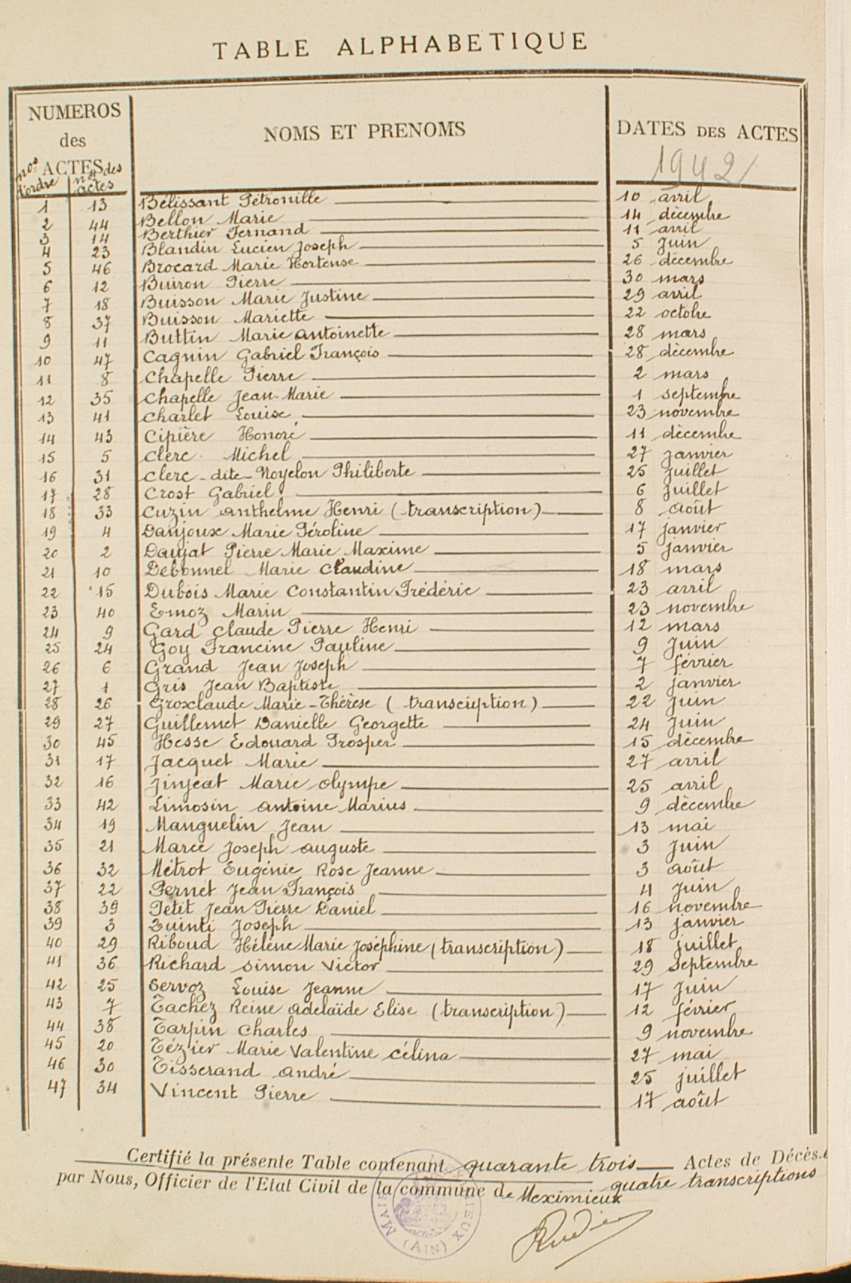 TABLE ALPHABETIQUE
NUMEROS des ACTES
NOMS ET PRENOMS
DATES DES ACTES
1942
nos d'ordre nos des actes
1 13 Bélissant Pétronille 10 avril
2 44 Bellon Marie 14 décembre
3 14 Berthier Fernand 11 avril
4 23 Blandin Lucien Joseph 5 Juin
5 46 Brocard Marie Hortense 26 décembre
6 12 Buiron Pierre 30 mars
7 18 Buisson Marie Justine 29 avril
8 37 Buisson Mariette 22 octobre
9 11 Buttin Marie Antoinette 28 mars
10 47 Cagnin Gabriel François 28 décembre
11 8 Chapelle Pierre 2 mars
12 35 Chapelle Jean-Marie 1 septembre
13 41 Charlet Louise 23 novembre
14 43 Cipière Honoré 11 décembre
15 5 Clerc Michel 27 janvier
16 31 Clerc-dite-Noyelon Philiberte 25 Juillet
17 28 Crost Gabriel 6 Juillet
18 33 Cuzin Anthelme Henri (transcription) 8 août
19 4 Danjoux Marie Péroline 17 janvier
20 2 Daujat Pierre Marie Maxime 5 Janvier
21 10 Debonnel Marie Claudine 18 mars
22 15 Dubois Marie Constantin Frédéric 23 avril
23 40 Emoz Marin 23 novembre
24 9 Gard Claude Pierre Henri 12 mars
25 24 Goy Francine Pauline 9 Juin
26 6 Grand Jean Joseph 7 février
27 1 Gris Jean Baptiste 2 janvier
28 26 Groxclaude Marie-Thérèse (transcription) 22 Juin
29 27 Guillemet Danielle Georgette 24 Juin
30 45 Hesse Edouard Prosper 15 décembre
31 17 Jacquet Marie 27 avril
32 16 Jinjeat Marie Olympe 25 avril
33 42 Limosin Antoine Marius 9 décembre
34 19 Manguelin Jean 13 mai
35 21 Marce Joseph Auguste 3 Juin
36 32 Métrot Eugénie Rose Jeanne 3 août
37 22 Pernet Jean François 4 Juin
38 39 Petit Jean Pierre Daniel 16 novembre
39 3 Quinti Joseph 13 janvier
40 29 Riboud Hélène Marie Joséphine (transcription) 18 juillet
41 36 Richard Simon Victor 29 septembre
42 25 Servoz Louise Jeanne 17 Juin
43 7 Tachez Reine Adelaïde Elise (transcription) 12 février
44 38 Tarpin Charles 9 novembre
45 20 Tézier Marie Valentine Célina 27 mai
46 30 Tisserand André 25 juillet
47 34 Vincent Pierre 17 août
Certifié la présente Table contenant quarante trois Actes de Décès.
par Nous, Officier de l'Etat Civil de la commune de Meximieux quatre transcriptions
(AIN)